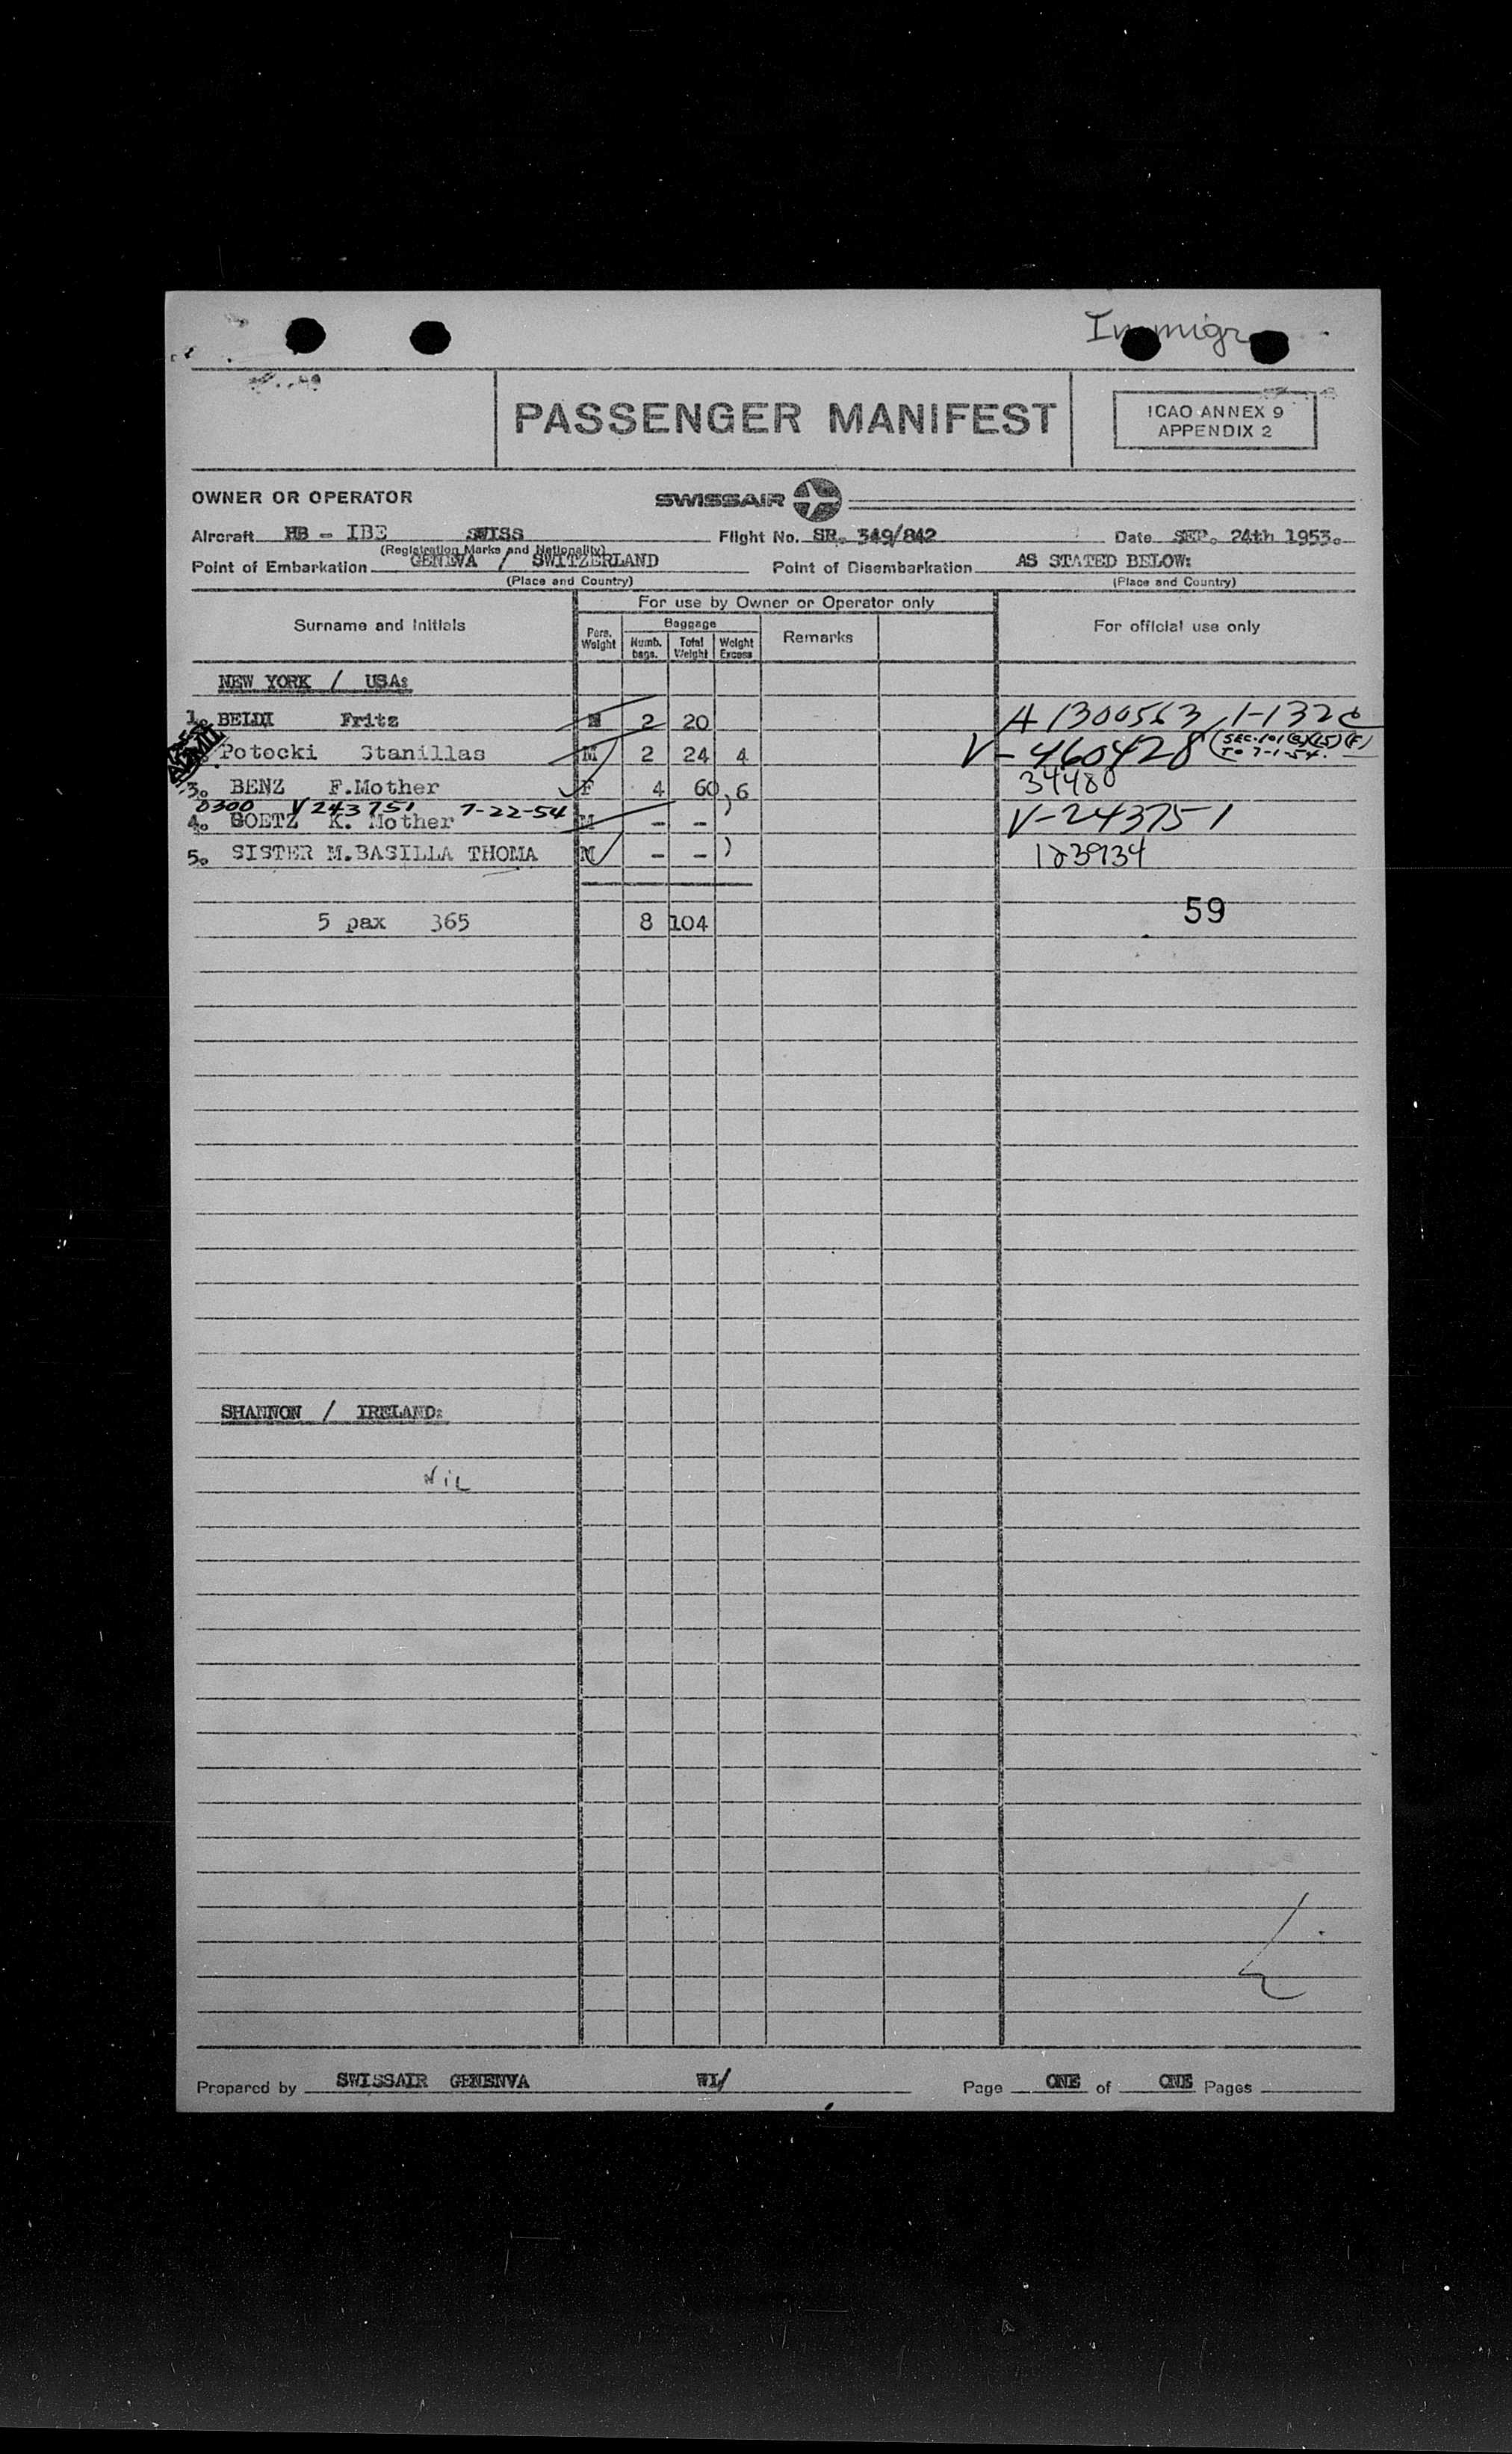 Immigr
PASSENGER MANIFEST
ICAO ANNEX 9
APPENDIX 2
OWNER OR OPERATOR SWISSAIR
Aircraft HB - IBE SWISS Flight No. SR. 349/842 Date SEP. 24th 1953.
(Registration Marks and Nationality)
Point of Embarkation GENEVA / SWITZERLAND Point of Disembarkation AS STATED BELOW:
(Place and Country) (Place and Country)
For use by Owner or Operator only
Surname and Initials Pers. Weight Baggage Numb. bags. Total Weight Weight Excess Remarks For official use only
NEW YORK / USA:
1. BELDI Fritz M 2 20 A 1300563, 1-132c
ADMIT Potocki Stanillas M 2 24 4 V-460428 (SEC. 101(a)(15)(F) TO 7-1-54.
3. BENZ F.Mother F 4 60 6 34480
0300 V243751 7-22-54
4. GOETZ K. Mother M - - ) V-243751
5. SISTER M.BASILLA THOMA M - - ) 123934
5 pax 365 8 104 59
SHANNON / IRELAND:
NiL
Prepared by SWISSAIR GENENVA WI/ Page ONE of ONE Pages